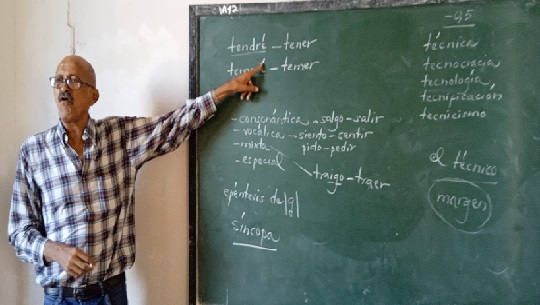 tendré - tener
- temer
- consonántica - salgo - salir
- vocálica - siento - sentir
pido - pedir
- mixta
- especial
traigo - traer
epéntesis de |g|
síncopa
técnica
tecnocracia
tecnología
tecnificación
tecnicismo
el técnico
margen